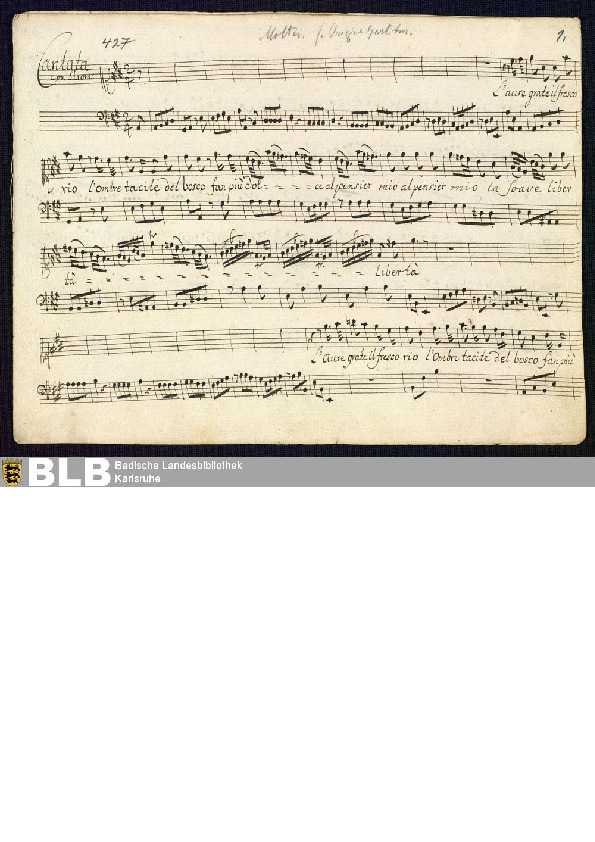 427 Molter. 1.
Cantata
con Strom:
L'aure grate il fresco
rio l'ombre tacite del bosco fan più dol - - - ce al pensier mio al pensier mio la soave liber
tà - - - - - - - - - - - - - libertà
L'aure grate il fresco rio l'Ombre tacite del bosco fan più
BLB Badische Landesbibliothek
Karlsruhe